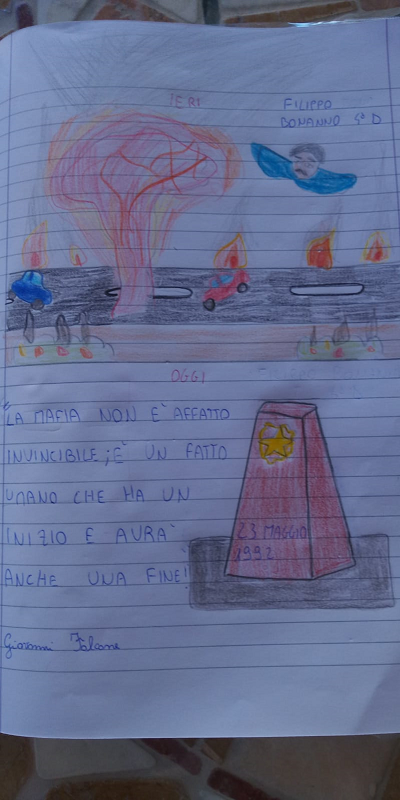 IERI
FILIPPO
BONANNO 5° D
OGGI
"LA MAFIA NON È AFFATTO
INVINCIBILE; È UN FATTO
UMANO CHE HA UN
INIZIO E AVRA'
ANCHE UNA FINE!"
Giovanni Falcone
23 MAGGIO
1992